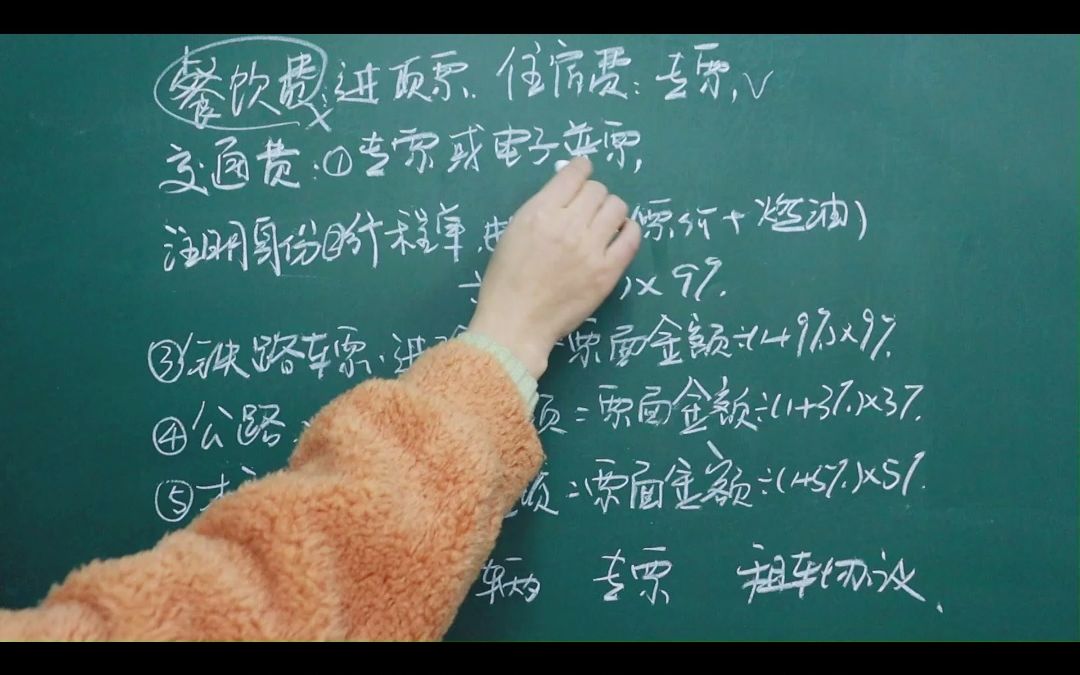 餐饮费:进项票. 住宿费:专票,√
交通费:①专票或电子普票,
注明身份②行程单.进 票价+燃油)
)×9%.
③铁路车票.进 票面金额÷(1+9%)×9%
④公路 项=票面金额÷(1+3%)×3%.
⑤ 项=票面金额÷(1+5%)×5%.
车辆 专票 租车协议、